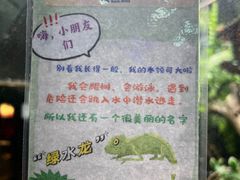 嗨，小朋友
们
别看我长得一般，我的本领可大啦
我会爬树、会游泳，遇到
危险还会跳入水中潜水逃走。
所以我还有一个很美丽的名字
“绿水龙”